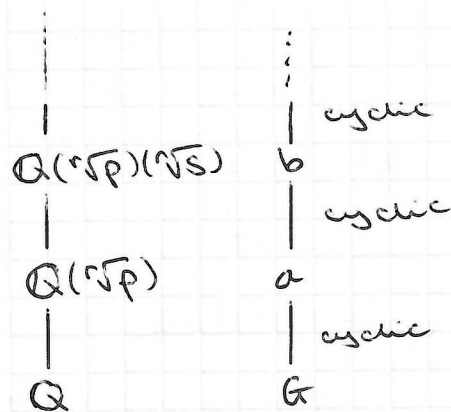 cyclic
Q(ⁿ√p)(ⁿ√s) b
cyclic
Q(ⁿ√p) a
cyclic
Q G